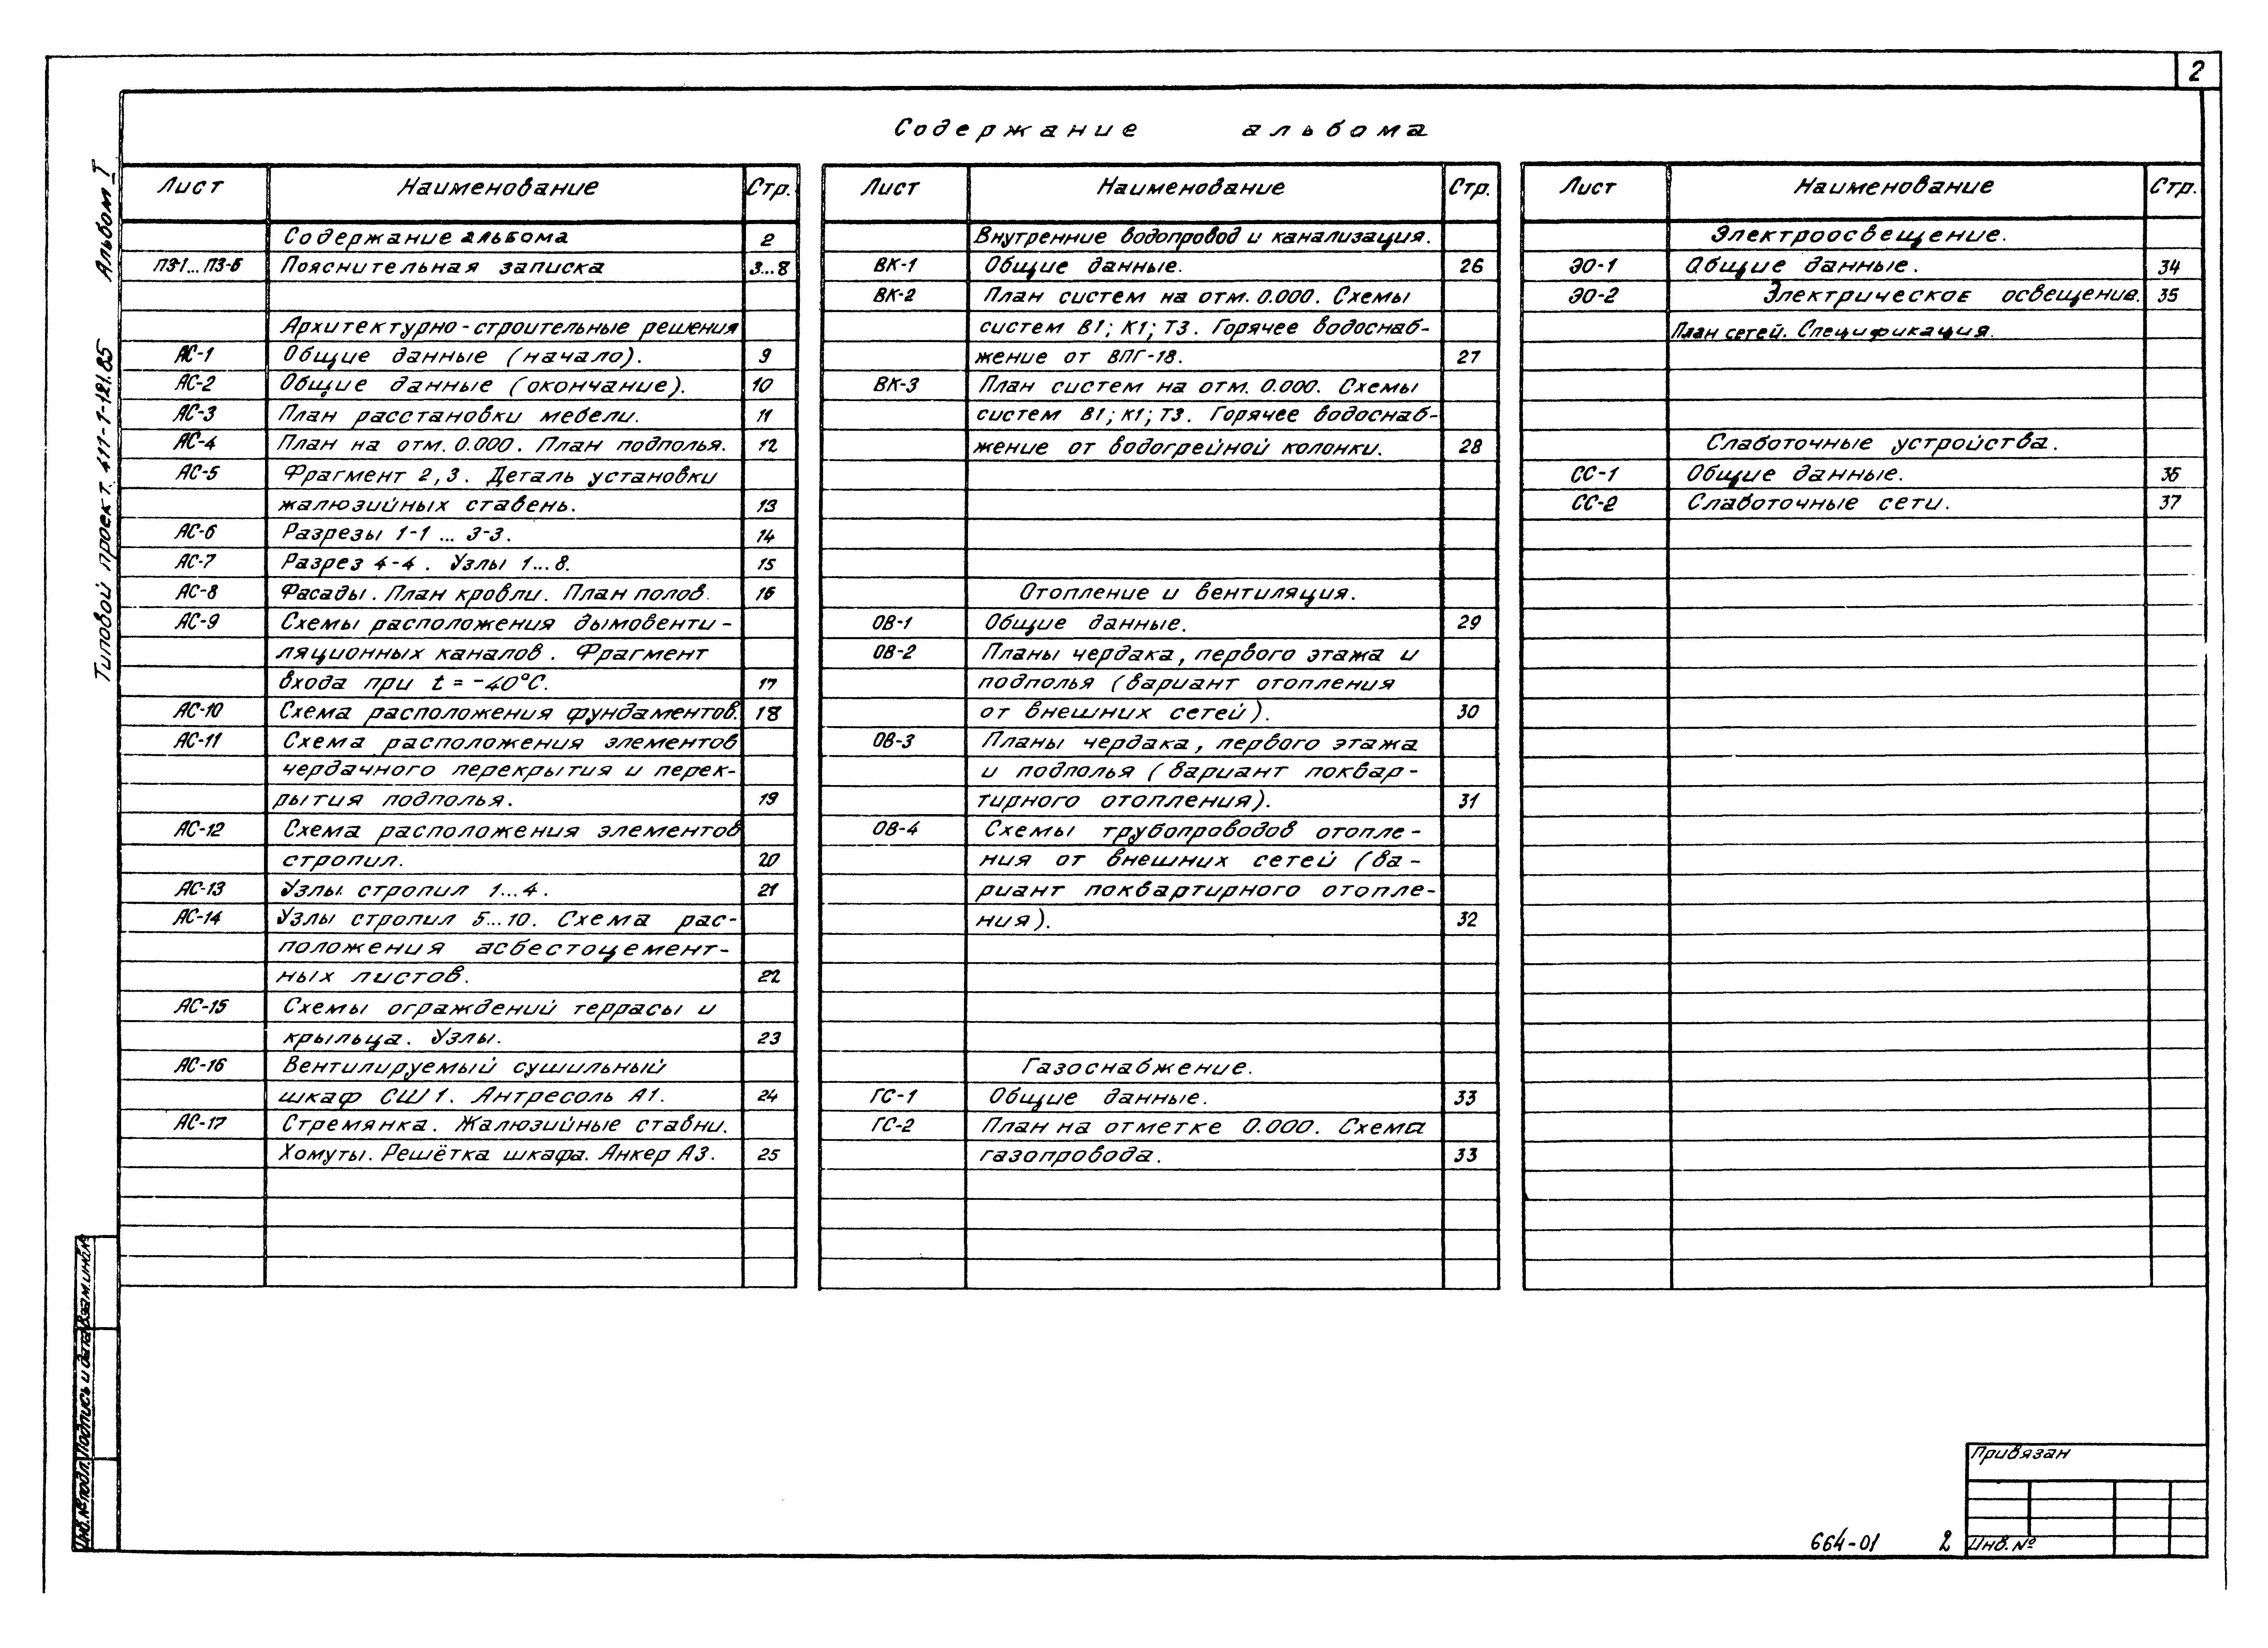 2
Содержание альбома
Типовой проект 411-1-121.85 Альбом I
Лист Наименование Стр.
Содержание альбома 2
ПЗ-1...ПЗ-6 Пояснительная записка 3...8
Архитектурно-строительные решения
АС-1 Общие данные (начало). 9
АС-2 Общие данные (окончание). 10
АС-3 План расстановки мебели. 11
АС-4 План на отм. 0.000. План подполья. 12
АС-5 Фрагмент 2,3. Деталь установки
жалюзийных ставень. 13
АС-6 Разрезы 1-1 ... 3-3. 14
АС-7 Разрез 4-4. Узлы 1...8. 15
АС-8 Фасады. План кровли. План полов. 16
АС-9 Схемы расположения дымовенти-
ляционных каналов. Фрагмент
входа при t = -40°С. 17
АС-10 Схема расположения фундаментов. 18
АС-11 Схема расположения элементов
чердачного перекрытия и перек-
рытия подполья. 19
АС-12 Схема расположения элементов
стропил. 20
АС-13 Узлы стропил 1...4. 21
АС-14 Узлы стропил 5...10. Схема рас-
положения асбестоцемент-
ных листов. 22
АС-15 Схемы ограждений террасы и
крыльца. Узлы. 23
АС-16 Вентилируемый сушильный
шкаф СШ1. Антресоль А1. 24
АС-17 Стремянка. Жалюзийные ставни.
Хомуты. Решётка шкафа. Анкер А3. 25
Лист Наименование Стр.
Внутренние водопровод и канализация.
ВК-1 Общие данные. 26
ВК-2 План систем на отм. 0.000. Схемы
систем В1; К1; Т3. Горячее водоснаб-
жение от ВПГ-18. 27
ВК-3 План систем на отм. 0.000. Схемы
систем В1; К1; Т3. Горячее водоснаб-
жение от водогрейной колонки. 28
Отопление и вентиляция.
ОВ-1 Общие данные. 29
ОВ-2 Планы чердака, первого этажа и
подполья (вариант отопления
от внешних сетей). 30
ОВ-3 Планы чердака, первого этажа
и подполья (вариант поквар-
тирного отопления). 31
ОВ-4 Схемы трубопроводов отопле-
ния от внешних сетей (ва-
риант поквартирного отопле-
ния). 32
Газоснабжение.
ГС-1 Общие данные. 33
ГС-2 План на отметке 0.000. Схема
газопровода. 33
Лист Наименование Стр.
Электроосвещение.
ЭО-1 Общие данные. 34
ЭО-2 Электрическое освещение. 35
План сетей. Спецификация.
Слаботочные устройства.
СС-1 Общие данные. 36
СС-2 Слаботочные сети. 37
Инв. № подл. Подпись и дата Взам. инв. №
Привязан
Инв. №
664-01 2